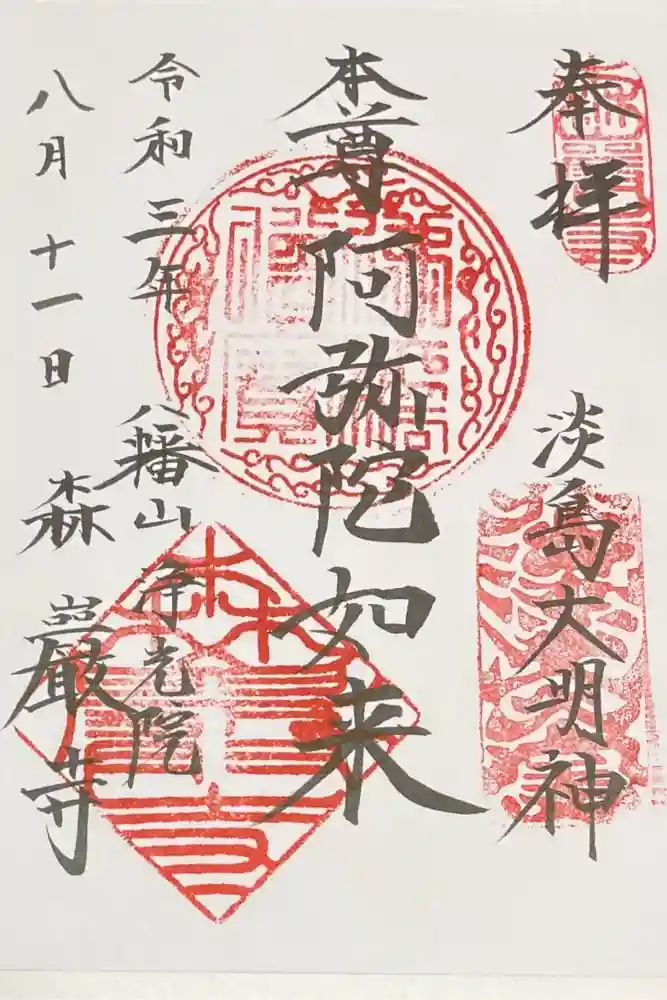 奉拝
淡島大明神
本尊阿弥陀如来
令和三年
八幡山 浄光院
八月十一日
森巖寺